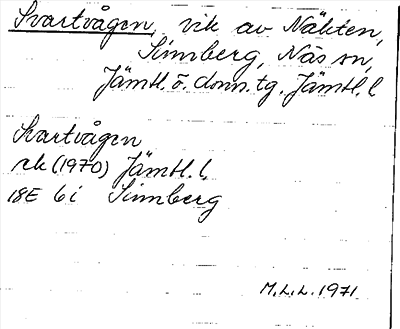 Svartvågen, vik av Näkten,
Sinnberg, Näs sn,
Jämtl. ö. doms. tg. Jämtl. l
Svartvågen
rk (1970) Jämtl. l.
18E 6i Sinnberg
M.L.L. 1971